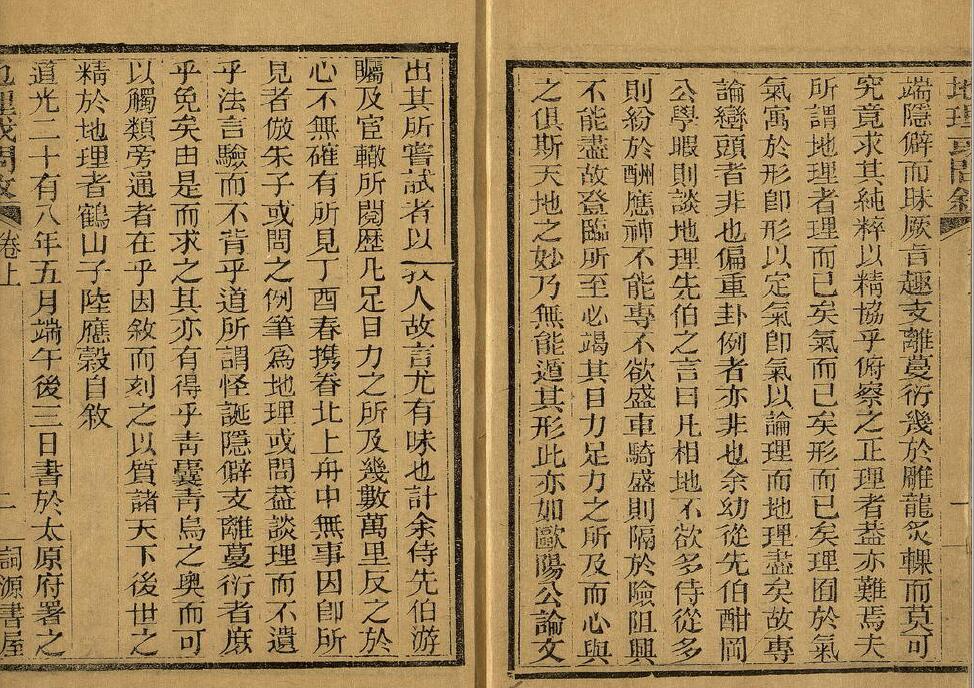 地理或問敘 一
端隱僻而昧厥旨趣支離蔓衍幾於雕龍炙輠而莫可
究竟求其純粹以精協乎俯察之正理者葢亦難焉夫
所謂地理者理而已矣氣而已矣形而已矣理囿於氣
氣寓於形卽形以定氣卽氣以論理而地理盡矣故專
論巒頭者非也偏重卦例者亦非也余幼從先伯酣岡
公學暇則談地理先伯之言曰凡相地不欲多侍從多
則紛於酬應神不能專不欲盛車騎盛則隔於險阻興
不能盡故登臨所至必竭其目力足力之所及而心與
之俱斯天地之妙乃無能遁其形此亦如歐陽公論文
出其所嘗試者以人故言尤有味也計余侍先伯游
矚及宦轍所閱歷凡足目力之所及幾數萬里反之於
心不無確有所見丁酉春携眷北上舟中無事因卽所
見者倣朱子或問之例筆為地理或問葢談理而不遺
乎法言驗而不背乎道所謂怪誕隱僻支離蔓衍者庶
乎免矣由是而求之其亦有得乎靑囊靑烏之奧而可
以觸類旁通者在乎因敘而刻之以質諸天下後世之
精於地理者鶴山子陸應穀自敘
道光二十有八年五月端午後三日書於太原府署之
地理或問敘 卷上 二 詞源書屋